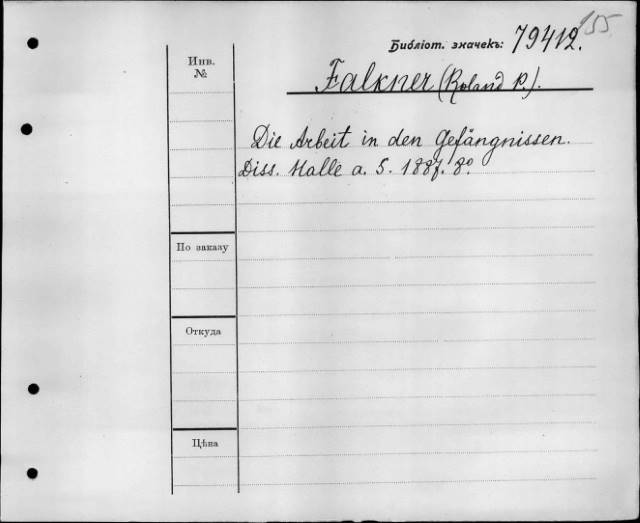 155
Библіот. значекъ: 79412.
Инв.
№
Falkner (Roland P.).
Die Arbeit in den Gefängnissen.
Diss. Halle a. S. 1887. 8º
По заказу
Откуда
Цѣна